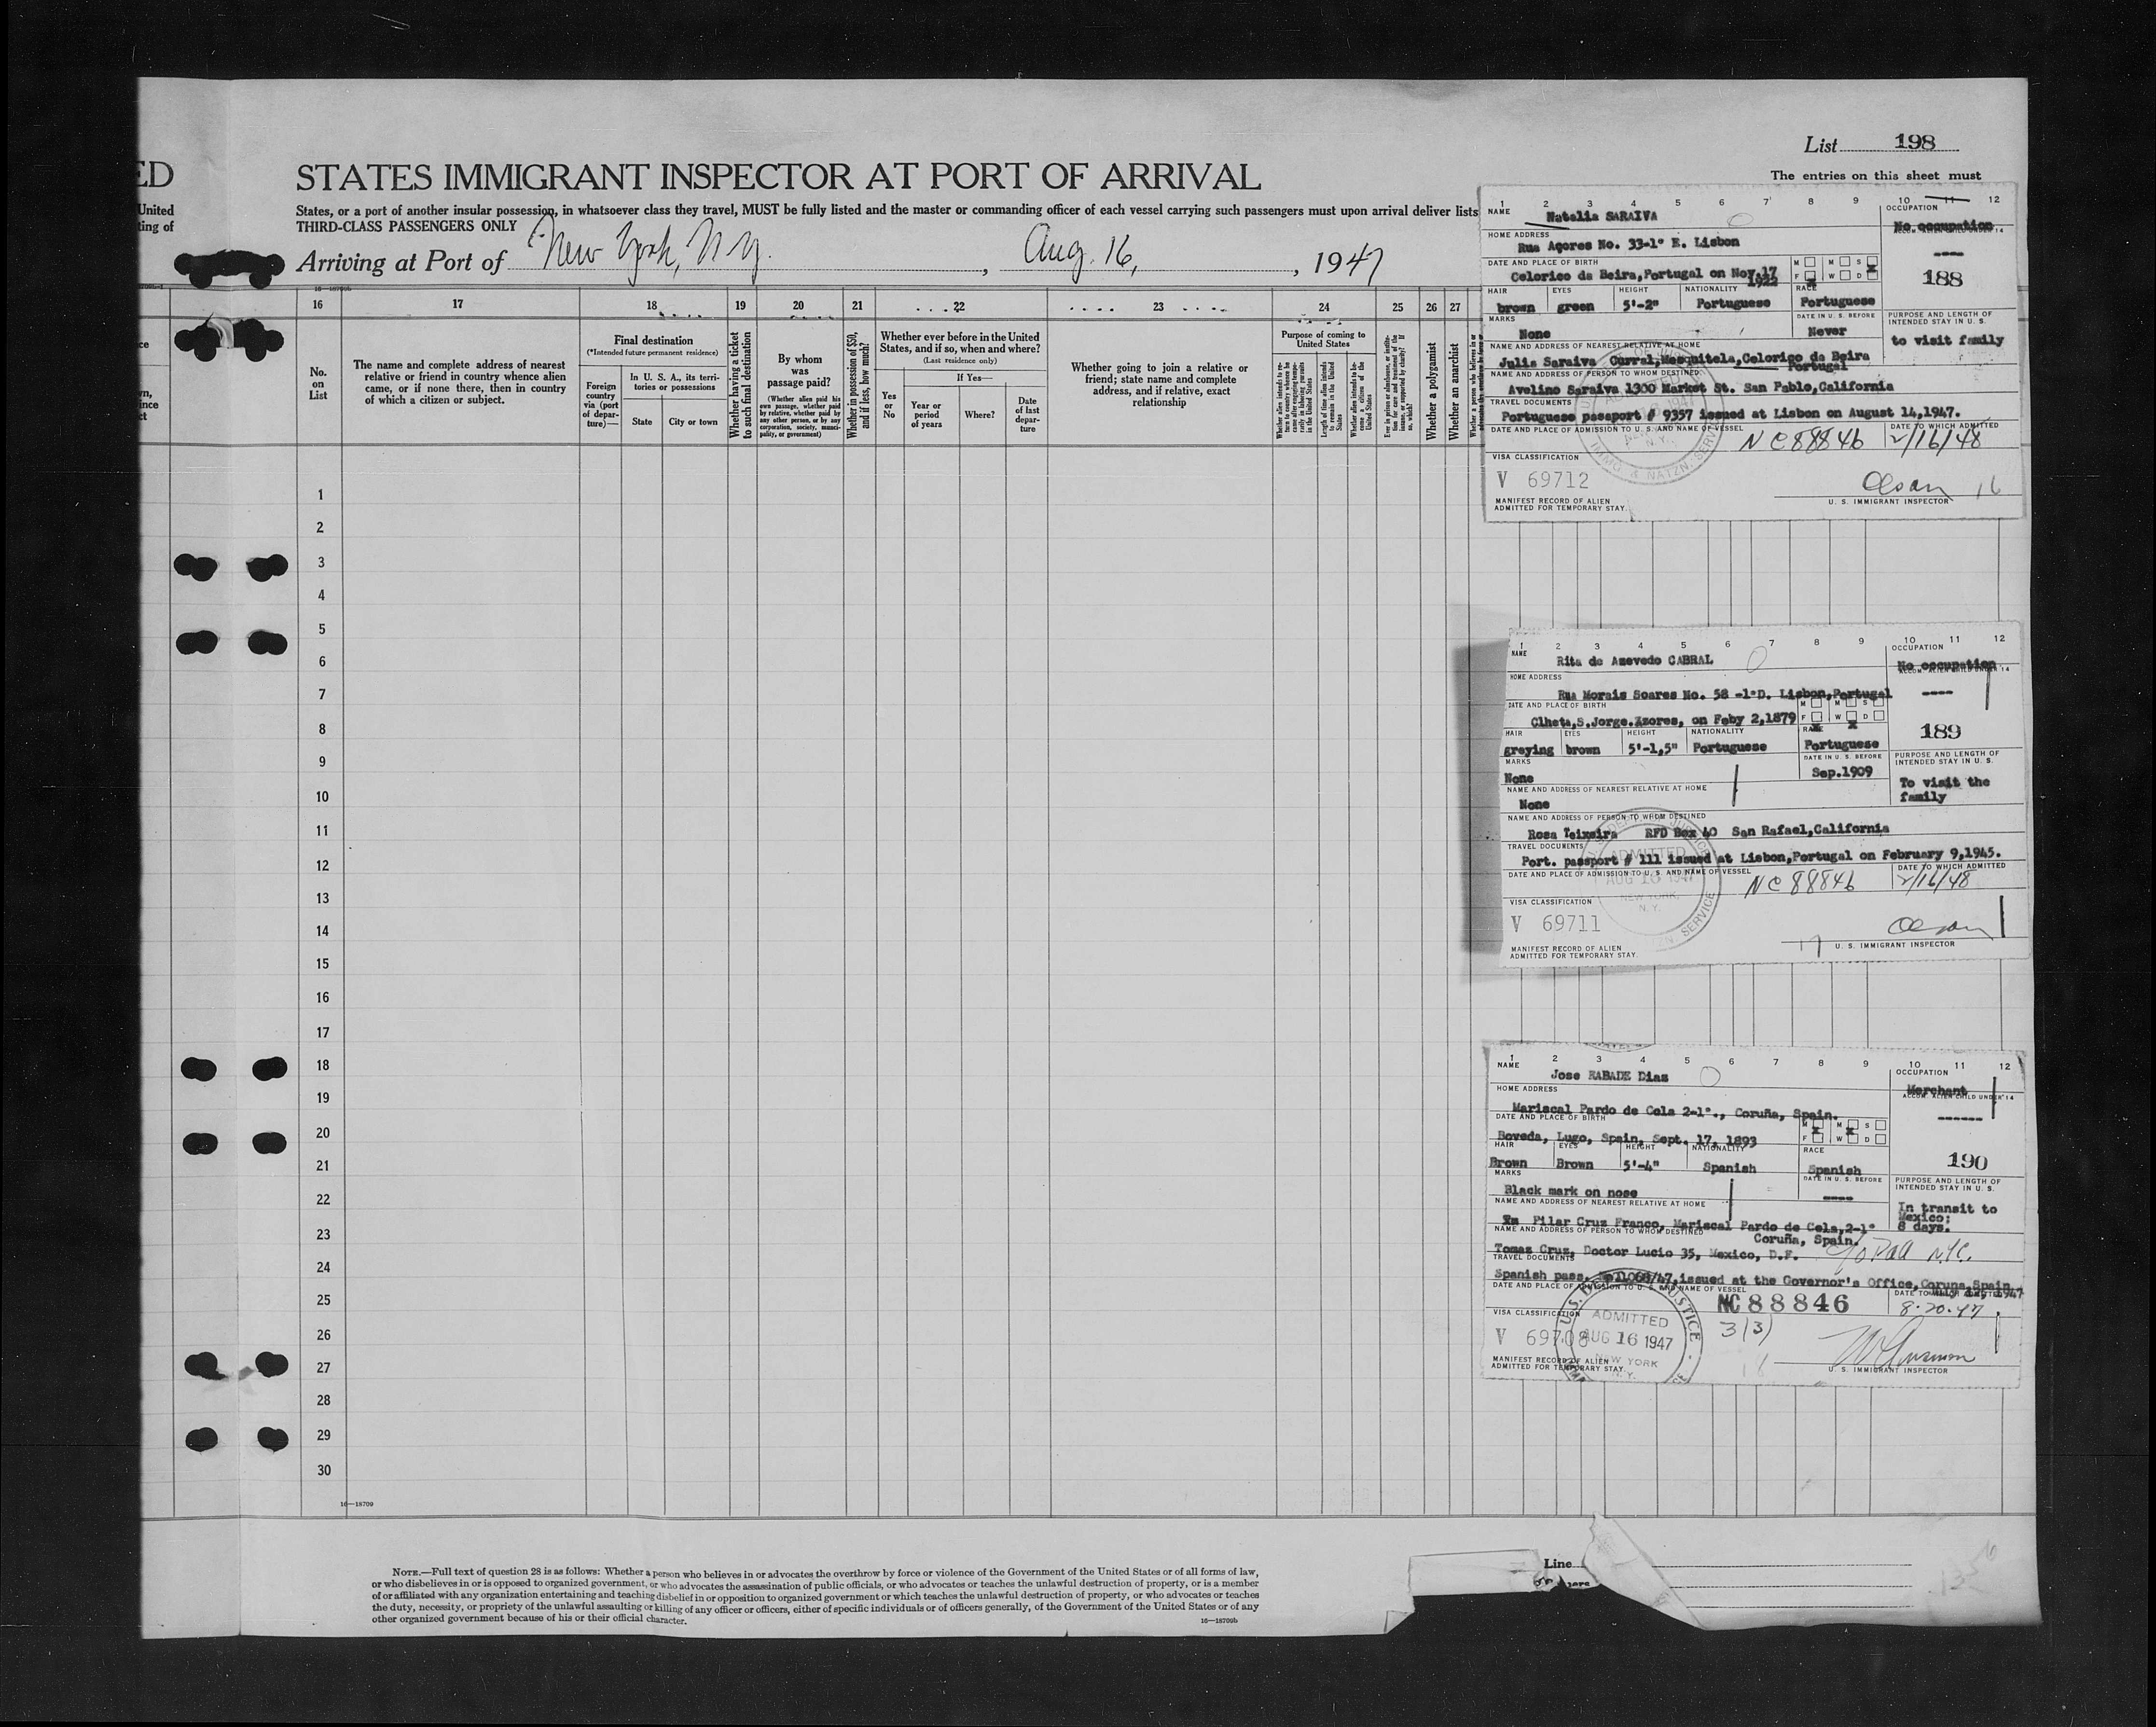 List 198
ED STATES IMMIGRANT INSPECTOR AT PORT OF ARRIVAL
The entries on this sheet must
United
ting of
States, or a port of another insular possession, in whatsoever class they travel, MUST be fully listed and the master or commanding officer of each vessel carrying such passengers must upon arrival deliver lists
THIRD-CLASS PASSENGERS ONLY
Arriving at Port of New York, N.Y., Aug. 16, 1947
16 17 18 19 20 21 22 23 24 25 26 27
No. on List
The name and complete address of nearest relative or friend in country whence alien came, or if none there, then in country of which a citizen or subject.
Final destination
(*Intended future permanent residence)
Foreign country via (port of departure)—
In U. S. A., its territories or possessions
State
City or town
Whether having a ticket to such final destination
By whom was passage paid?
(Whether alien paid his own passage, whether paid by relative, whether paid by any other person, or by any corporation, society, municipality, or government)
Whether in possession of $50, and if less, how much?
Whether ever before in the United States, and if so, when and where?
(Last residence only)
If Yes—
Yes or No
Year or period of years
Where?
Date of last departure
Whether going to join a relative or friend; state name and complete address, and if relative, exact relationship
Purpose of coming to United States
Length of time alien intends to remain in the United States
Whether a polygamist
Whether an anarchist
1
2
3
4
5
6
7
8
9
10
11
12
13
14
15
16
17
18
19
20
21
22
23
24
25
26
27
28
29
30
16—18709
1 2 3 4 5 6 7 8 9 10 11 12
NAME Natalia SARAIVA
OCCUPATION
No occupation
HOME ADDRESS
Rua Açores No. 33-1° E. Lisbon
DATE AND PLACE OF BIRTH
Celorico da Beira,Portugal on Nov.17 1922
M M S
F W D
188
HAIR EYES HEIGHT NATIONALITY RACE
brown green 5'-2" Portuguese Portuguese
MARKS
None
DATE IN U. S. BEFORE
Never
PURPOSE AND LENGTH OF INTENDED STAY IN U. S.
to visit family
NAME AND ADDRESS OF NEAREST RELATIVE AT HOME
Julia Saraiva Curral,Mesquitela,Celorico da Beira
Portugal
NAME AND ADDRESS OF PERSON TO WHOM DESTINED
Avelino Saraiva 1300 Market St. San Pablo,California
TRAVEL DOCUMENTS
Portuguese passport # 9357 issued at Lisbon on August 14,1947.
DATE AND PLACE OF ADMISSION TO U. S. AND NAME OF VESSEL
NC 88846
DATE TO WHICH ADMITTED
2/16/48
VISA CLASSIFICATION
V 69712
Olson 16
MANIFEST RECORD OF ALIEN
ADMITTED FOR TEMPORARY STAY.
U. S. IMMIGRANT INSPECTOR
1 2 3 4 5 6 7 8 9 10 11 12
NAME Rita de Azevedo CABRAL
OCCUPATION
No occupation
HOME ADDRESS
Rua Morais Soares No. 58 -1°D. Lisbon,Portugal
DATE AND PLACE OF BIRTH
Clheta,S.Jorge.Azores, on Feby 2,1879
M M S
F W D
189
HAIR EYES HEIGHT NATIONALITY RACE
greying brown 5'-1,5" Portuguese Portuguese
MARKS
None
DATE IN U. S. BEFORE
Sep.1909
PURPOSE AND LENGTH OF INTENDED STAY IN U. S.
To visit the family
NAME AND ADDRESS OF NEAREST RELATIVE AT HOME
None
NAME AND ADDRESS OF PERSON TO WHOM DESTINED
Rosa Teixeira RFD Box 40 San Rafael,California
TRAVEL DOCUMENTS
Port. passport # 111 issued at Lisbon,Portugal on February 9,1945.
DATE AND PLACE OF ADMISSION TO U. S. AND NAME OF VESSEL
ADMITTED
AUG 16 1947
NEW YORK, N.Y.
NC 88846
DATE TO WHICH ADMITTED
2/16/48
VISA CLASSIFICATION
V 69711
Olson
17
MANIFEST RECORD OF ALIEN
ADMITTED FOR TEMPORARY STAY
U. S. IMMIGRANT INSPECTOR
1 2 3 4 5 6 7 8 9 10 11 12
NAME Jose RABADE Diaz
OCCUPATION
Merchant
HOME ADDRESS
Mariscal Pardo de Cela 2-1°., Coruña, Spain.
DATE AND PLACE OF BIRTH
Boveda, Lugo, Spain, Sept. 17, 1893
M M S
F W D
190
HAIR EYES HEIGHT NATIONALITY RACE
Brown Brown 5'-4" Spanish Spanish
MARKS
Black mark on nose
DATE IN U. S. BEFORE
PURPOSE AND LENGTH OF INTENDED STAY IN U. S.
In transit to Mexico; 8 days.
NAME AND ADDRESS OF NEAREST RELATIVE AT HOME
Pilar Cruz Franco, Mariscal Pardo de Cela,2-1°
Coruña, Spain.
NAME AND ADDRESS OF PERSON TO WHOM DESTINED
Tomas Cruz, Doctor Lucio 35, Mexico, D.F.
TRAVEL DOCUMENTS
Spanish pass. issued at the Governor's Office,Coruna,Spain,
DATE AND PLACE OF ADMISSION TO U. S. AND NAME OF VESSEL
NC 88846
8-20-47
3(3)
VISA CLASSIFICATION
V 69708
ADMITTED
AUG 16 1947
NEW YORK
N.Y.
MANIFEST RECORD OF ALIEN
ADMITTED FOR TEMPORARY STAY.
U. S. IMMIGRANT INSPECTOR
Line
NOTE.—Full text of question 28 is as follows: Whether a person who believes in or advocates the overthrow by force or violence of the Government of the United States or of all forms of law,
or who disbelieves in or is opposed to organized government, or who advocates the assassination of public officials, or who advocates or teaches the unlawful destruction of property, or is a member
of or affiliated with any organization entertaining and teaching disbelief in or opposition to organized government or which teaches the unlawful destruction of property, or who advocates or teaches
the duty, necessity, or propriety of the unlawful assaulting or killing of any officer or officers, either of specific individuals or of officers generally, of the Government of the United States or of any
other organized government because of his or their official character.
16—18709b